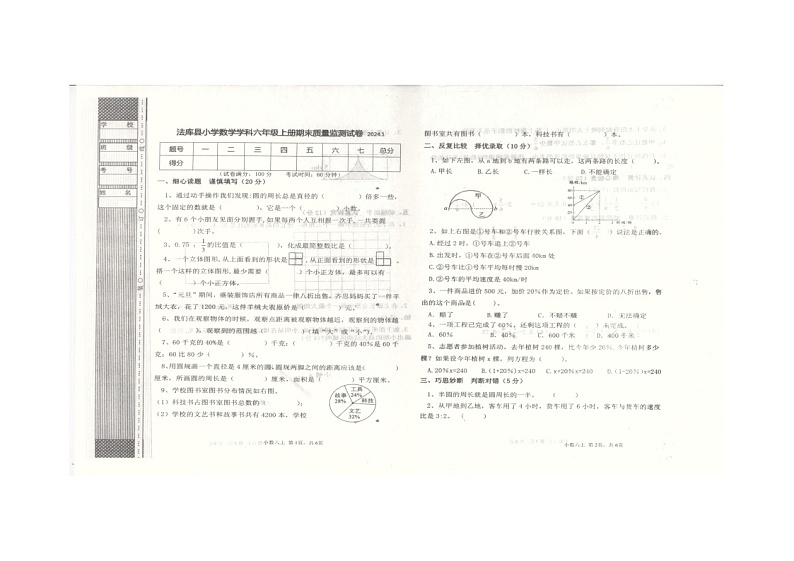 学校
班级
考号
姓名
法库县小学数学学科六年级上册期末质量监测试卷 2024.1
题号 一 二 三 四 五 六 七 总分
得分
(试卷满分：100分 考试时间：60分钟)
一、细心读题 谨慎填写(20分)
1、通过动手操作我们发现:圆的周长总是直径的( )倍多一些,
这个固定的数是( ),它是一个( )小数。
2、有6个小朋友见面分别握手,如果每两个人互相握一次手,一共要握
( )次手。
3、0.75：1/3的比值是( )，化成最简整数比是( )。
4、一个立体图形,从上面看到的形状是 ,从正面看到的形状是 ,
搭一个这样的立体图形,最少需要( )个小正方体,最多可以有
( )个小正方体。
5、“元旦”期间,
羊绒大衣,花了1200元,这件羊绒大衣原价是( )元。
6、我们在观察物体的时候,观察点距离被观察物体越近,观察到的物体越
( ),观察到的范围越( )(填“大”或“小”)。
7、60千克的40%是( )千克;( )千克的40%是60千
克;60比80少( )%。
8、用圆规画一个直径是4厘米的圆,圆规两脚之间的距离应该是( )
厘米,所画圆的周长是( )厘米,面积是( )平方厘米。
9、学校图书室图书分布情况如右图。
(1)科技书占图书室图书总数的( );
(2)学校的文艺书和故事书共有4200本,学校
工具
24%
故事
28%
科技
文艺
32%
小数六上 第1页，共6页
图书室共有图书( )本,科技书有( )本。
二、反复比较 择优录取(10分)
1、如下左图,从a地到b地有两条路可以走,这两条路的长度( )。
A.甲长 B.乙长 C.一样长 D.不能确定
甲
乙
2、如上右图是①号车和②号车行驶关系图,下面( )说法是正确的。
A.经过2时,①号车追上②号车
B.出发时,①号车在②号车后面40km处
C.②号车比①号车的平均每时慢20km
D.②号车的平均速度是40km/时
3、一件商品进价500元,加价20%作为定价。如果按定价的八折出售,售
出的这个商品是( )。
A.赔了 B.赚了 C.不赔不赚 D.无法确定
4、一项工程已完成了60%,还剩这项工程的( )未完成。
A. 60% B. 40% C. 600千米
5、志愿者参加植树活动,去年植树240棵,比今年少20%,今年植树多少
棵？如果设今年植树x棵,列方程为( )。
A.20%x=240 B.(1+20%)x=240 C.x+20%x=240 D.(1-20%)x=240
三、巧思妙断 判断对错(5分)
1、半圆的周长就是圆周长的一半。 ( )
2、从甲地到乙地,客车用了4小时,货车用了6小时,客车与货车的速度
比是3:2。 ( )
小数六上 第2页，共6页